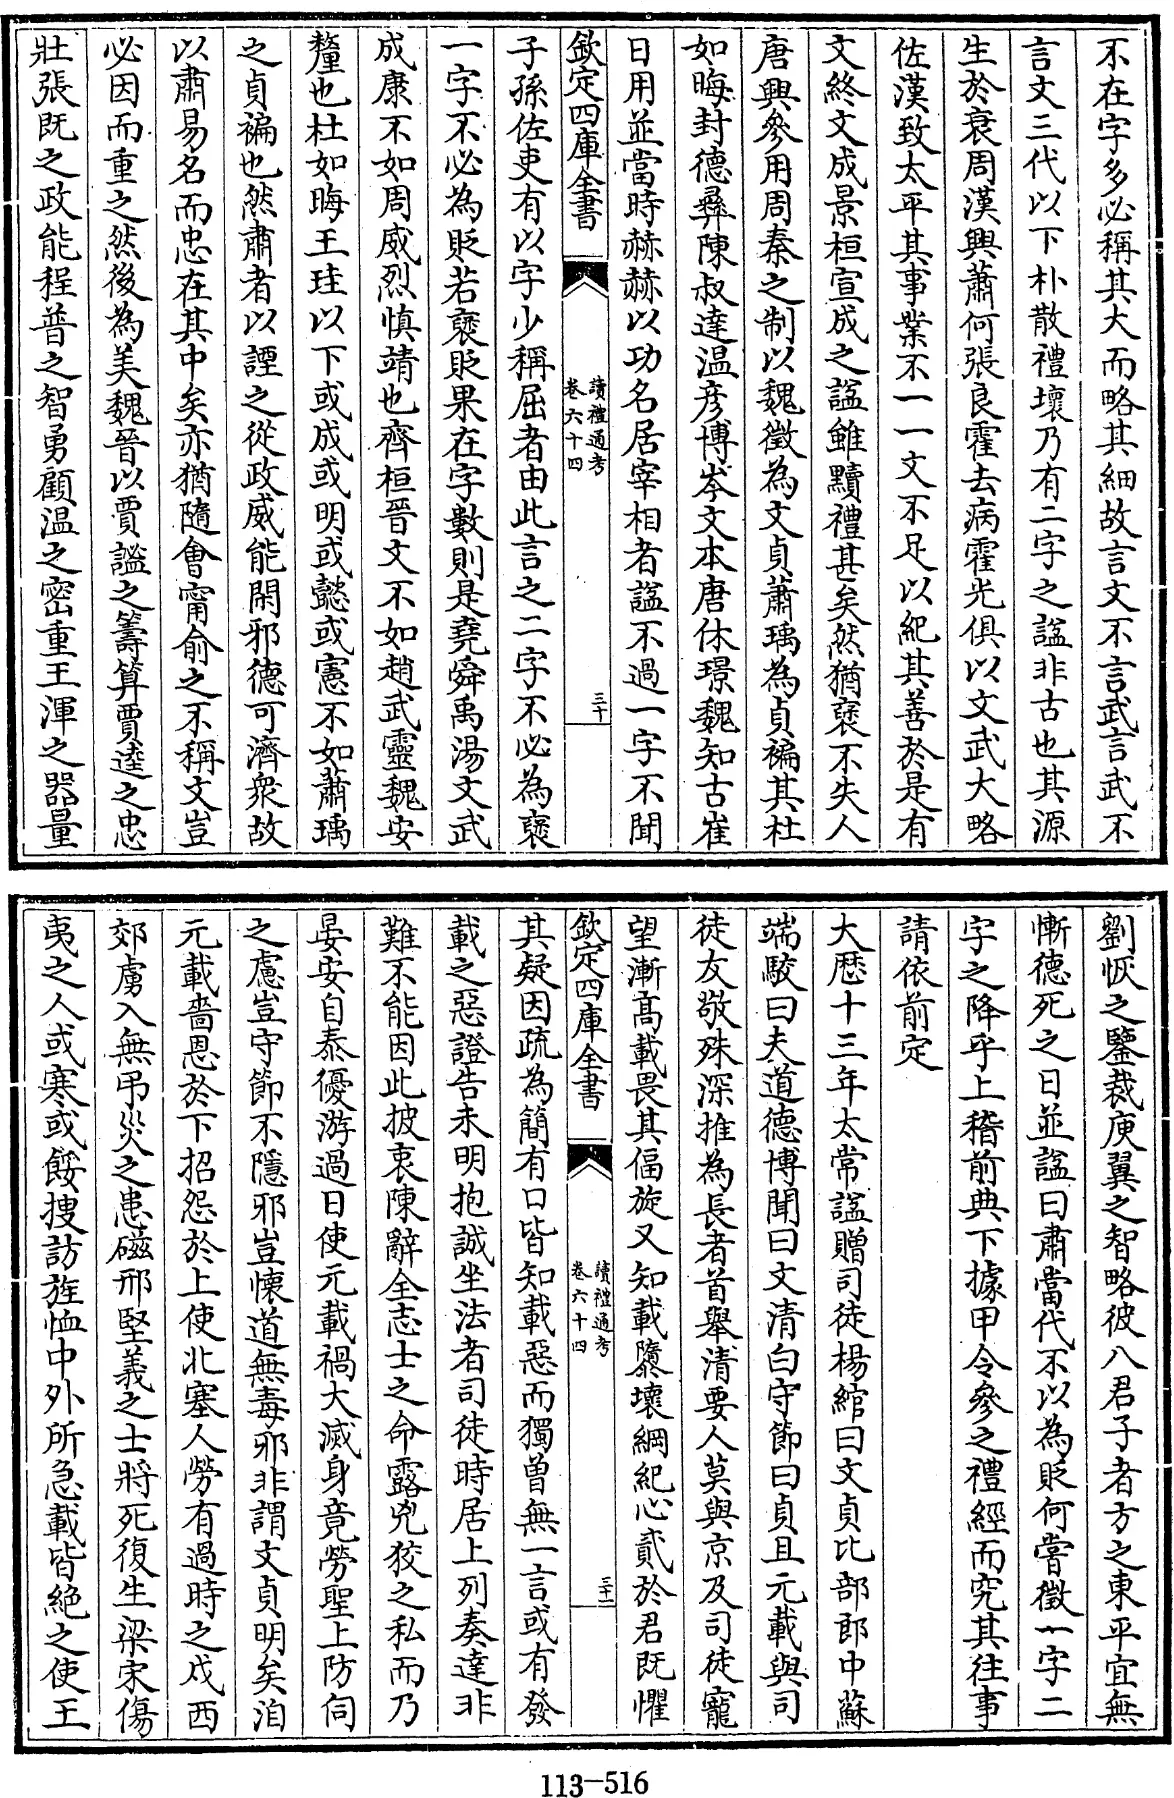 不在字多必稱其大而略其細故言文不言武言武不
言文三代以下朴散禮壞乃有二字之諡非古也其源
生於衰周漢興蕭何張良霍去病霍光俱以文武大略
佐漢致太平其事業不一一文不足以紀其善於是有
文終文成景桓宣成之諡雖黷禮甚矣然猶褒不失人
唐興參用周秦之制以魏徵為文貞蕭瑀為貞褊其杜
如晦封德彝陳叔達温彦博岑文本唐休璟魏知古崔
日用並當時赫赫以功名居宰相者諡不過一字不聞
欽定四庫全書
讀禮通考
卷六十四
三十
子孫佐吏有以字少稱屈者由此言之二字不必為褒
一字不必為貶若褒貶果在字數則是堯舜禹湯文武
成康不如周威烈慎靖也齊桓晉文不如趙武靈魏安
釐也杜如晦王珪以下或成或明或懿或憲不如蕭瑀
之貞褊也然肅者以諲之從政威能閑邪德可濟衆故
以肅易名而忠在其中矣亦猶隨會甯俞之不稱文豈
必因而重之然後為美魏晉以賈謐之籌算賈逵之忠
壯張既之政能程普之智勇顧温之密重王渾之器量
劉恢之鑒裁庾翼之智略彼八君子者方之東平宜無
慚德死之日並諡曰肅當代不以為貶何嘗徵一字二
字之降乎上稽前典下據甲令參之禮經而究其往事
請依前定
大厯十三年太常諡贈司徒楊綰曰文貞比部郎中蘇
端駮曰夫道德博聞曰文清白守節曰貞且元載與司
徒友敬殊深推為長者首舉清要人莫與京及司徒寵
望漸髙載畏其偪旋又知載隳壞綱紀心貳於君既懼
欽定四庫全書
讀禮通考
卷六十四
三十一
其疑因疏為簡有口皆知載惡而獨曾無一言或有發
載之惡證告未明抱誠坐法者司徒時居上列奏達非
難不能因此披衷陳辭全志士之命露兇狡之私而乃
晏安自泰優游過日使元載禍大滅身竟勞聖上防伺
之慮豈守節不隱邪豈懷道無毒邪非謂文貞明矣洎
元載嗇恩於下招怨於上使北塞人勞有過時之戍西
郊虜入無弔災之患磁邢堅義之士將死復生梁宋傷
夷之人或寒或餒搜訪旌恤中外所急載皆絶之使王
113-516